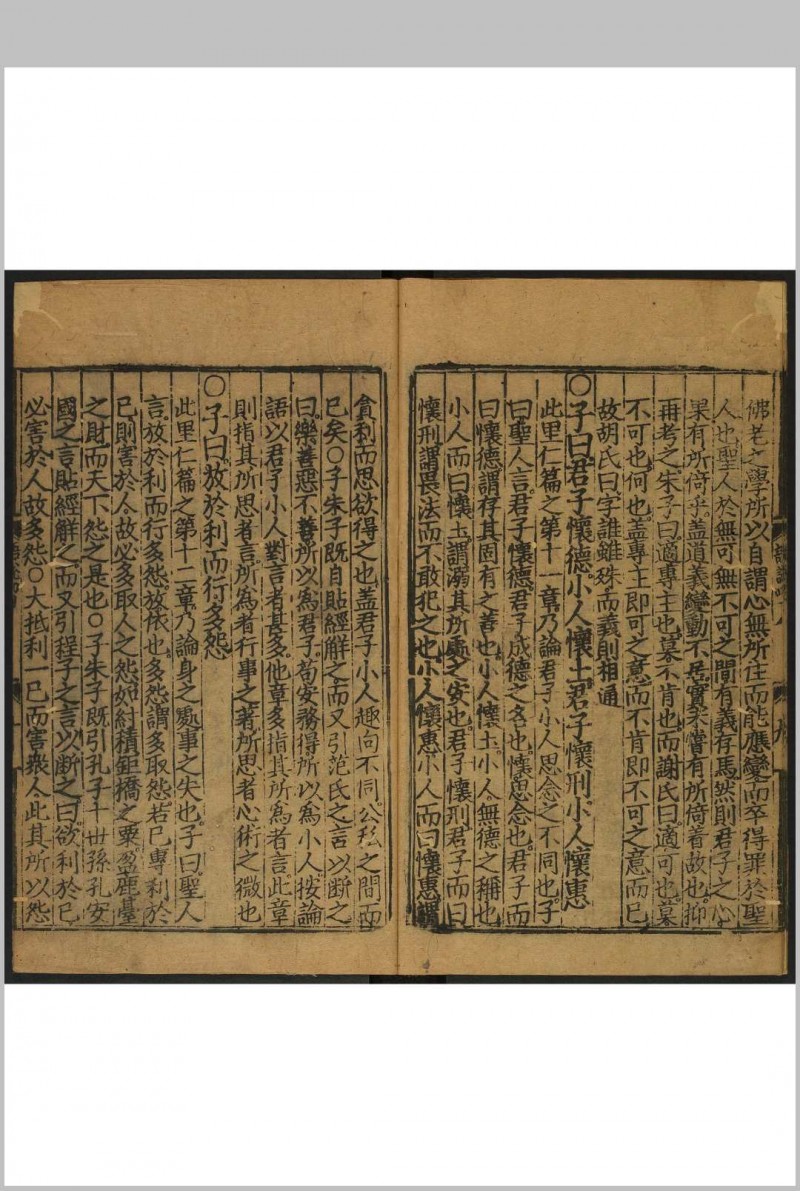 佛老之學所以自謂心無所住而能應變而卒得罪於聖
人也聖人於無可無不可之間有義存焉然則君子之心
果有所倚乎蓋道義變動不居實未嘗有所倚着故也抑
再考之朱子曰適專主也莫不肯也而謝氏曰適可也莫
不可也何也蓋專主即可之意而不肯即不可之意而已
故胡氏曰字訓雖殊而義則相通
○子曰君子懷德小人懷土君子懷刑小人懷惠
此里仁篇之第十一章乃論君子小人思念之不同也子
曰聖人言君子懷德君子成德之名也懷思念也君子而
曰懷德謂存其固有之善也小人懷土小人無德之稱也
小人而曰懷土謂溺其所處之安也君子懷刑君子而曰
懷刑謂畏法而不敢犯之也小人懷惠小人而曰懷惠謂
貪利而思欲得之也蓋君子小人趣向不同公私之間而
已矣○子朱子既自貼經解之而又引范氏之言以斷之
曰樂善惡不善所以為君子苟安務得所以為小人按論
語以君子小人對言者甚多他章多指其所為者言此章
則指其所思者言所為者行事之著所思者心術之微也
○子曰放於利而行多怨
此里仁篇之第十二章乃論身之處事之失也子曰聖人
言放於利而行多怨放依也多怨謂多取怨若已專利於
已則害於人故必多取人之怨如紂積鉅橋之粟盈鹿臺
之財而天下怨之是也○子朱子既引孔子十世孫孔安
國之言貼經解之而又引程子之言以斷之曰欲利於已
必害於人故多怨○大抵利一已而害衆人此其所以怨